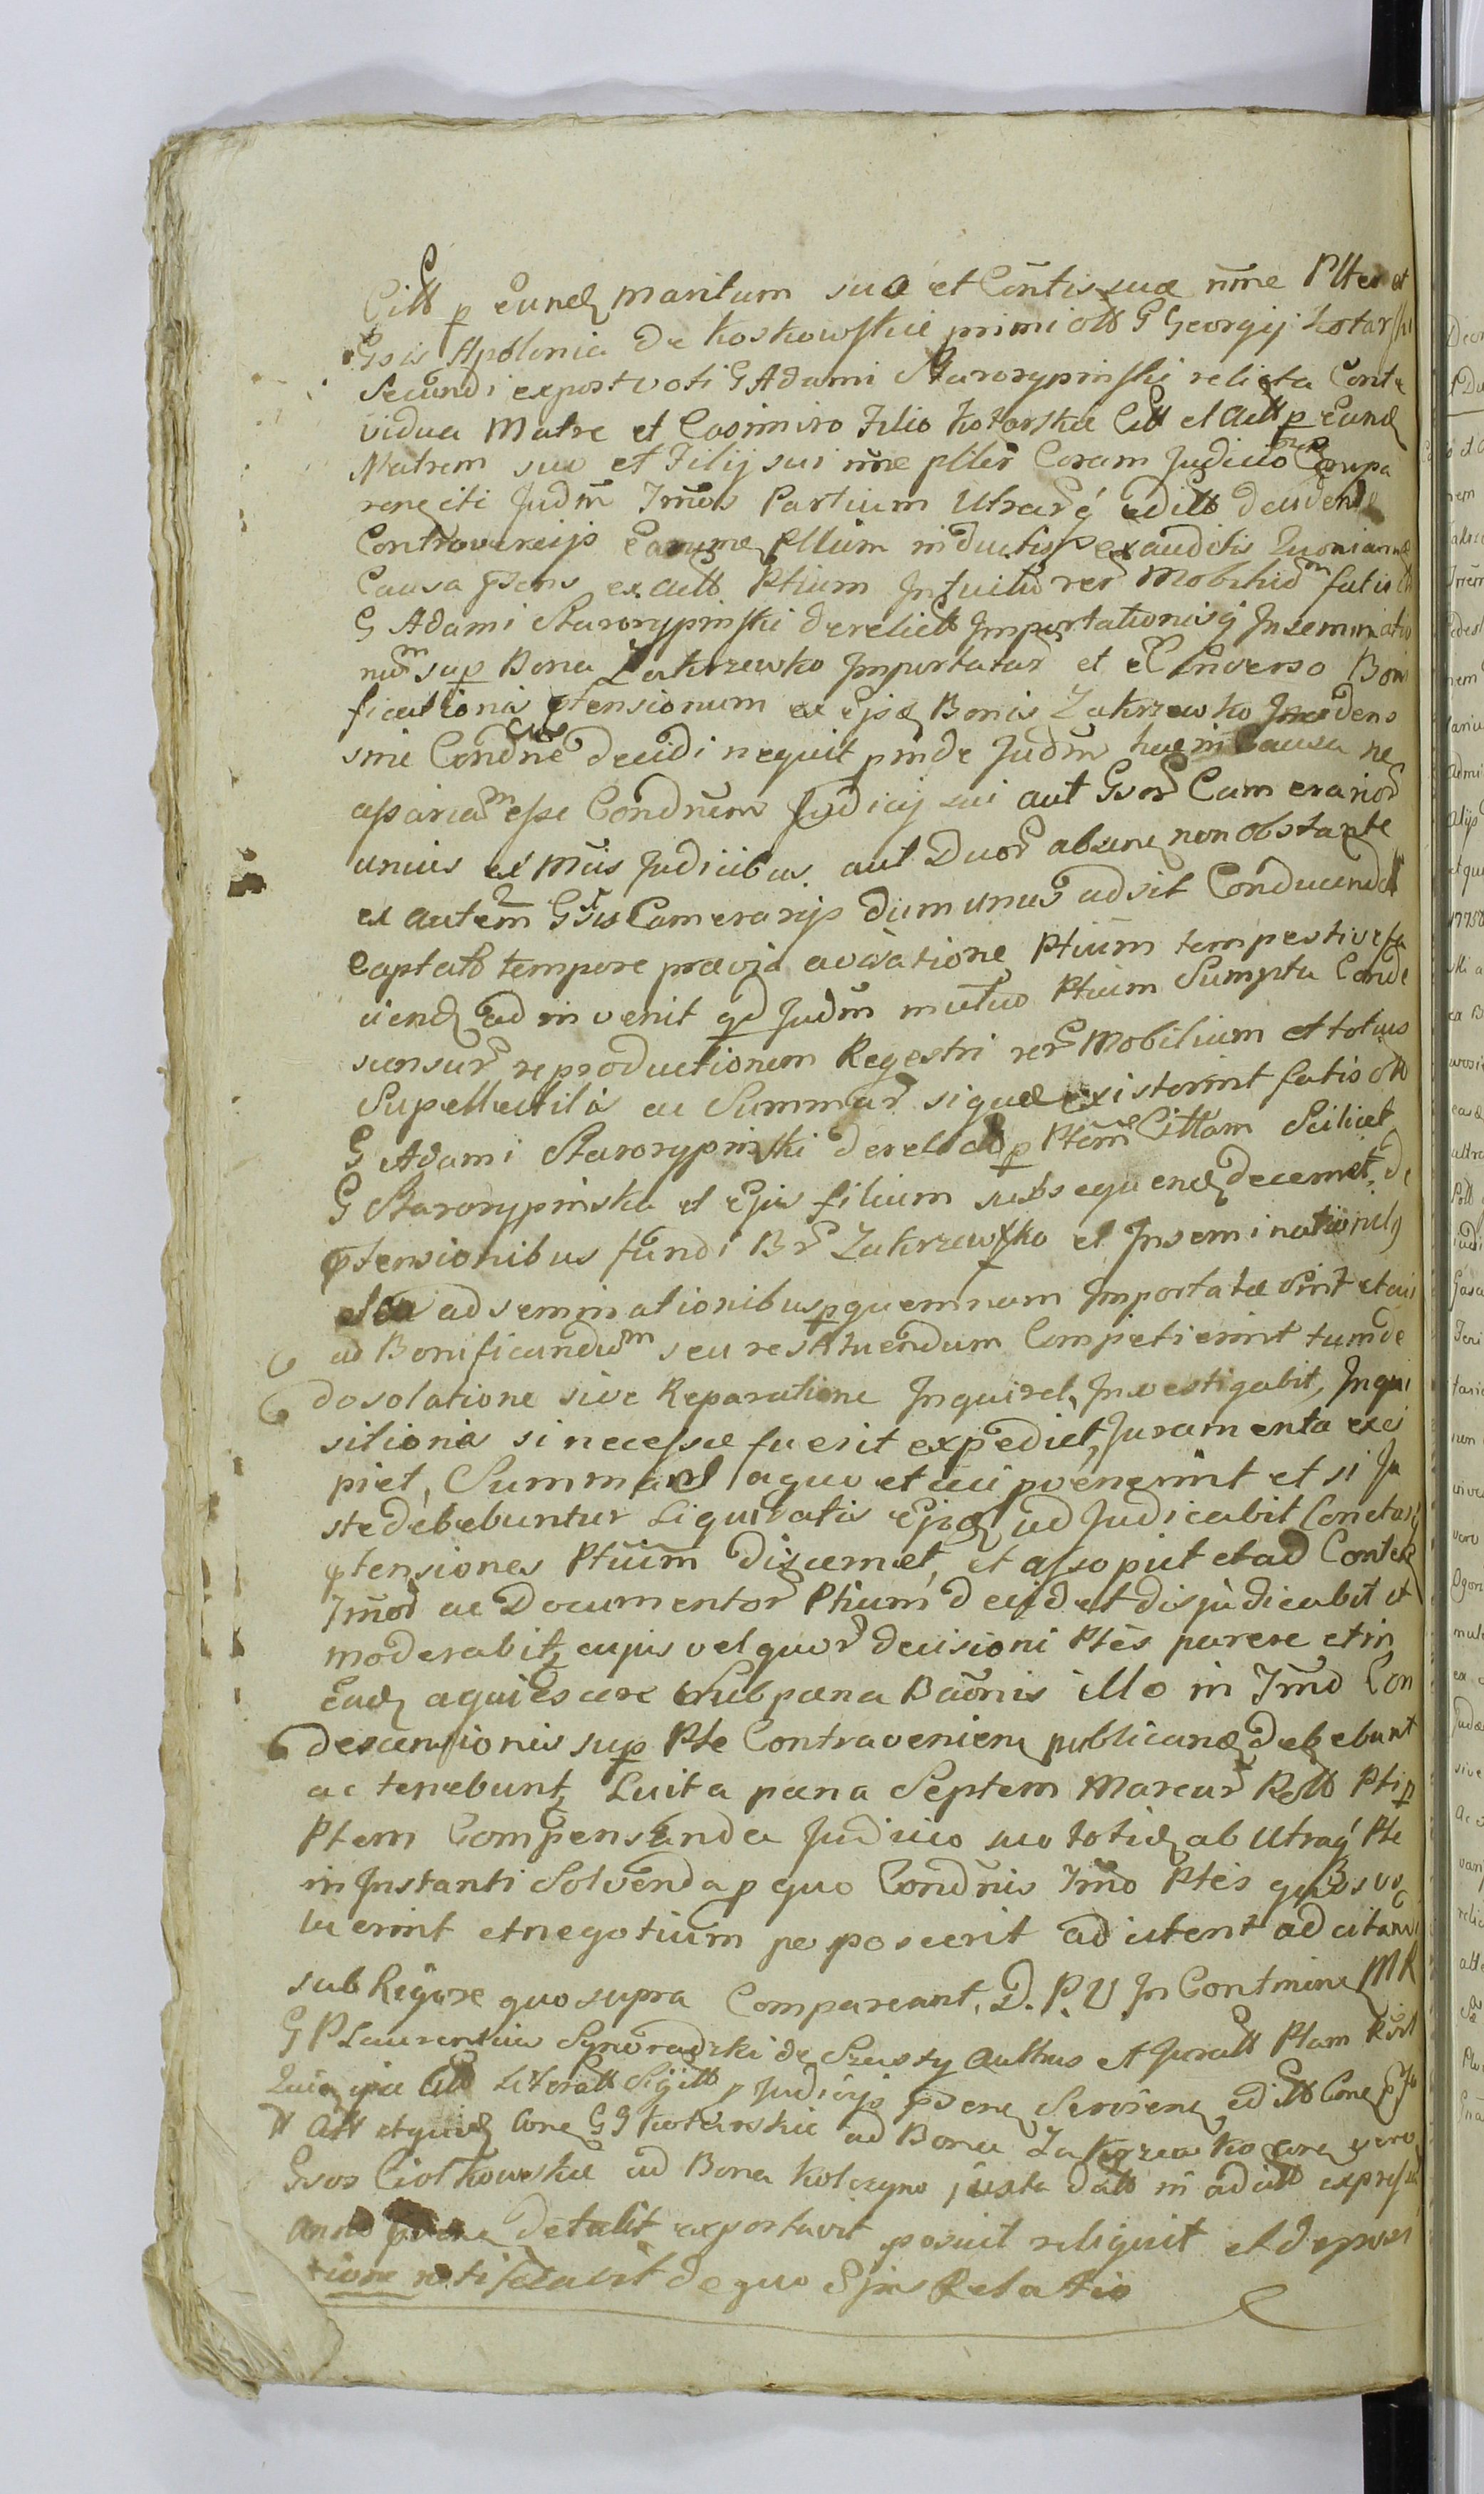 Citt p Eundȩ maritum suũ et Cõntis suæ nr̃ne Plter et
Gsis Apolonia de Koskowskie primi ott G Georgij Kotarski
Secundi expost voti G Adami Starorypinski relicta Conte
vidua Matre et Casimiro Filio Kotarskie Citt et Actt p Eand
Matrem suã et Filij sui nr̃ne plter Coram Judicio Compa
ren citi Judm̃ Jm̃os Partium Utrarq́ editt
Controversijs Earumq Ptium inductis exauditis Quoniam
Causa p̃sens ex actt Ptium Intuitu rer̃ Mobiliũ fatis ott
G Adami Starorypinski derelictt Importationisq́ Inseminatio
num sup Bona Zakrzewko Importatar̃ et e Converso Boni
ficationis p̃tensionum ex Ejsdȩ Bonis Zakrzewko
sine Condñe decidi nequit pinde Judm̃ hac in Causa ne
cssariam esse Condñem Judicij sui aut Gsor̃ Camerarior̃
unius ex Mũis Judicibus aut Duor̃ absene non obstante
ex autem Gsis Camerarijs dum unus adsit Conducendt
Captato tempore prævia avisatione Ptium tempestive fa
ciend ad invenit qd Judm̃ mutuo Ptium Sumptu Conde
scensur̃ reproductionem Regestri rer̃ Mobilium et totius
Supellectilis ac Summar̃ siquæ existerint fatis ott
G Adami Starorypinski derelictt p Ptem Cittam Scilicet
G Starorypinska et Ejus filium subsequene decernet, de
p̃tensionibus fundi Br̃ Zakrzewsko et Inseminationibȩ
seu adseminationibus p quemnam Importatæ sint et cui
ad Bonificandum seu restituendum Competierint tum de
desolatione sive Reparatione Inquiret, Investigabit, Inqui
sitionis si necesse fuerit expediet, Juramenta exci
piet, Summas a quo et cui provenerint et si Ju
ste debebuntur Liquidatis Ejsdȩ adJudicabit Cunctasq́
p̃tensiones Ptium discernet, et assopiet et ad Conten
Jm̃or̃ ac Documentor̃ Ptium decidet disjudicabit et
moderabitȩ cujus vel quor̃ decisioni Ptes parere et in
Eadȩ aquiescere sub pæna Bañnis illo in Jm̃o Con
descensionis sup Pte Contraveniene publicanȩ debebunt
ac tenebunt, Luita pæna Septem Marcar̃ Restt Pti p
Ptem Compensanda Judicio suo totidȩ ab Utraq́ Pte
in Instanti Solvenda p quo Condñis Jm̃o Ptes quos vo
luerint et negotium poposcerit adcitent adcitani
sub Rigore quo supra Compareant. D. P. V In Contmine MR
G P Laurentius Synoradzki de Szusty Aulhus et Juratt Ptam Restt
Quia ipse Citt Literatt Sigitt p Judicijs p̃sene Serosene editt Cone p̃to
tt Actt et quidȩ Cone GG Kotarskie ad Bona Zakrzewko Cone vero
Gsos Ciolkowskie ad Bona Kolczyno juxta datt in adcitt expressa
Anno p̃sene detulit exportavit posuit reliquit et deposi
tione notificavit de quo Ejus Relatio